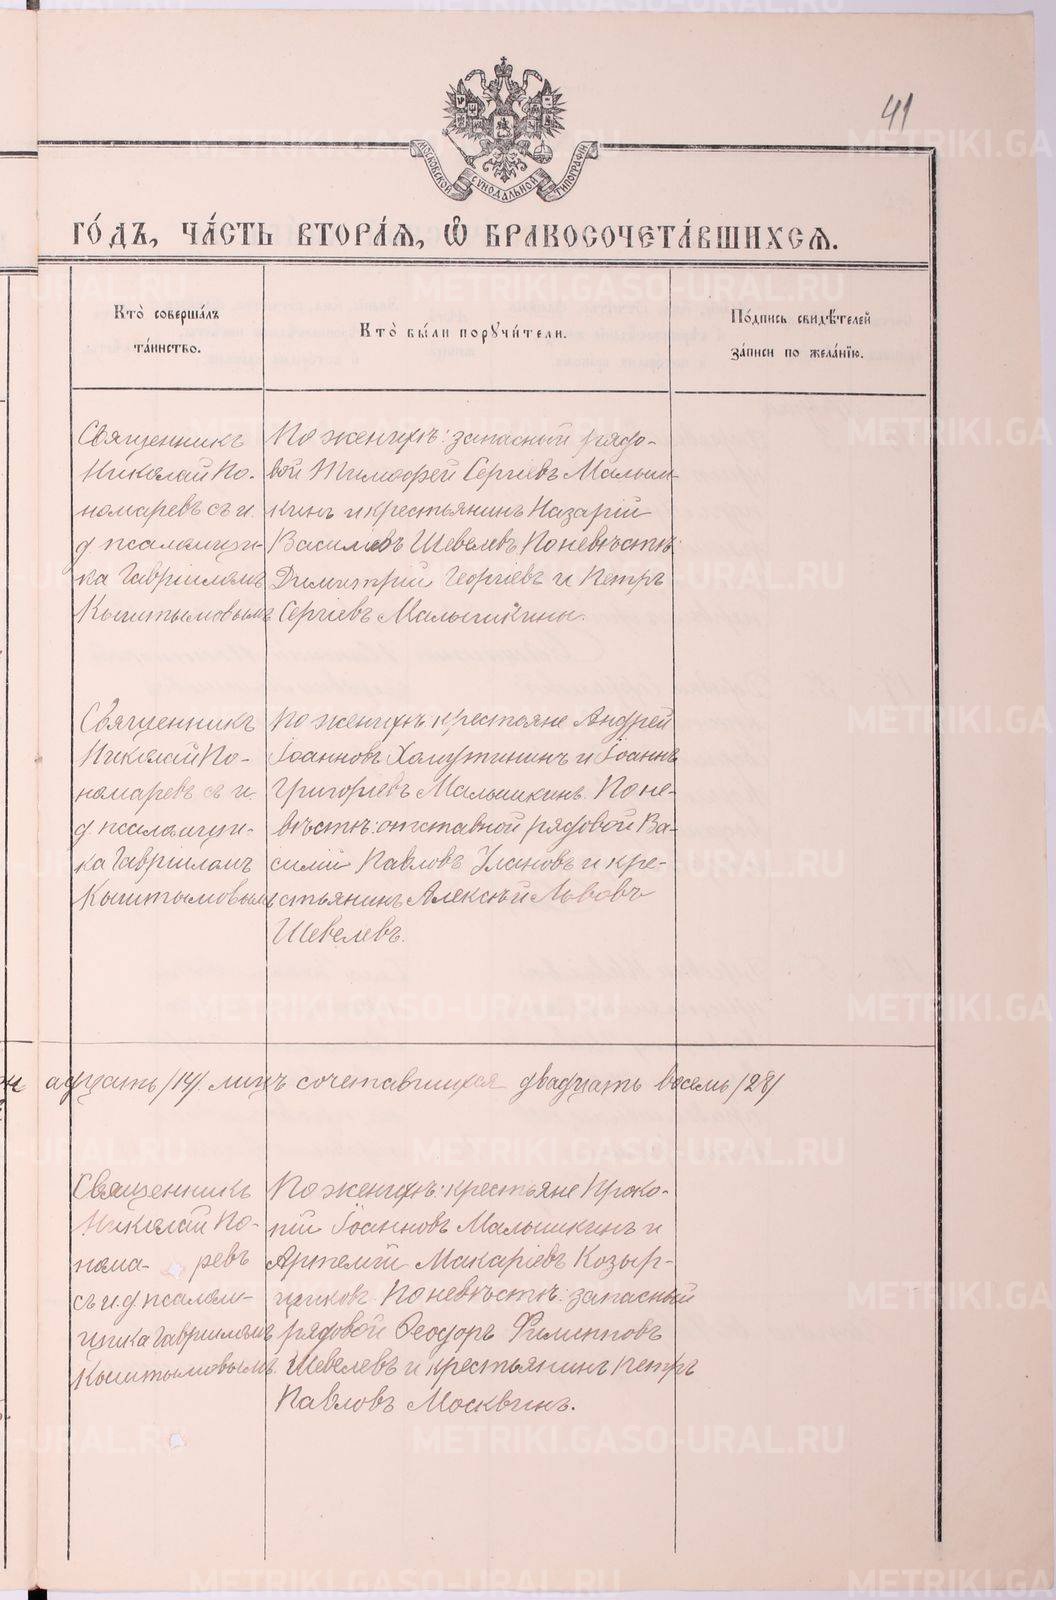 41
МОСКОВСКОЙ СѴНОДАЛЬНОЙ ТИПОГРАФІИ
ГО́ДЪ, ЧА́СТЬ ВТОРА́Ѧ, Ѽ БРАКОСОЧЕТА́ВШИХСѦ.
Кто̀ соверша́лъ
та́инство.
Кто̀ бы́ли порꙋчи́тели.
По́дпись свидѣ́телей
за́писи по жела́нїю.
Священникъ
Николай По-
номаревъ съ и.
д псаломщи-
ка Гавріиломъ
Кыштымовымъ
По женихѣ: запасный рядо-
вой Тимофей Сергіевъ Малыш-
кинъ и крестьянинъ Назарій
Василіевъ Шевелевъ. По невѣстѣ:
Димитрий Георгіевъ и Петръ
Сергіевъ Малышкины.
Священникъ
Николай По-
номаревъ съ и.
д псаломщи-
ка Гавріиломъ
Кыштымовымъ
По женихѣ: крестьяне Андрей
Іоанновъ Халустининъ и Іоаннъ
Григоріевъ Малышкинъ. По не-
вѣстѣ: отставной рядовой Ва-
силій Павловъ Улановъ и кре-
стьянинъ Алексѣй Львовъ
Шевелевъ.
адцать /14/ лицъ сочетавшихся двадцать восемь /28/
Священникъ
Николай По-
нома- ревъ
съ и. д псалом-
щика Гавріиломъ
Кыштымовымъ.
По женихѣ: крестьяне Проко-
пій Іоанновъ Малышкинъ и
Артемій Макаріевъ Козыр-
щиковъ. По невѣстѣ: запасный
рядовой Ѳеодоръ Филипповъ
Шевелевъ и крестьянинъ Петръ
Павловъ Москвинъ.